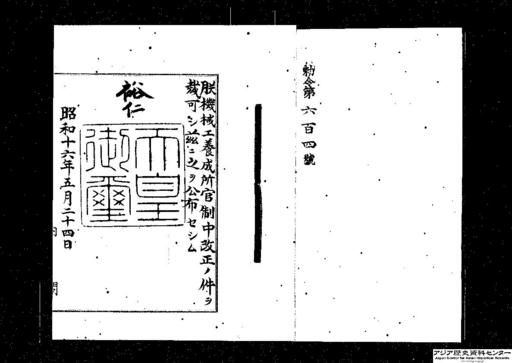 勅令第六百四號
朕機械工養成所官制中改正ノ件ヲ
裁可シ茲ニ之ヲ公布セシム
裕仁
天皇
御璽
昭和十六年五月二十四日
アジア歴史資料センター
Japan Center for Asian Historical Records